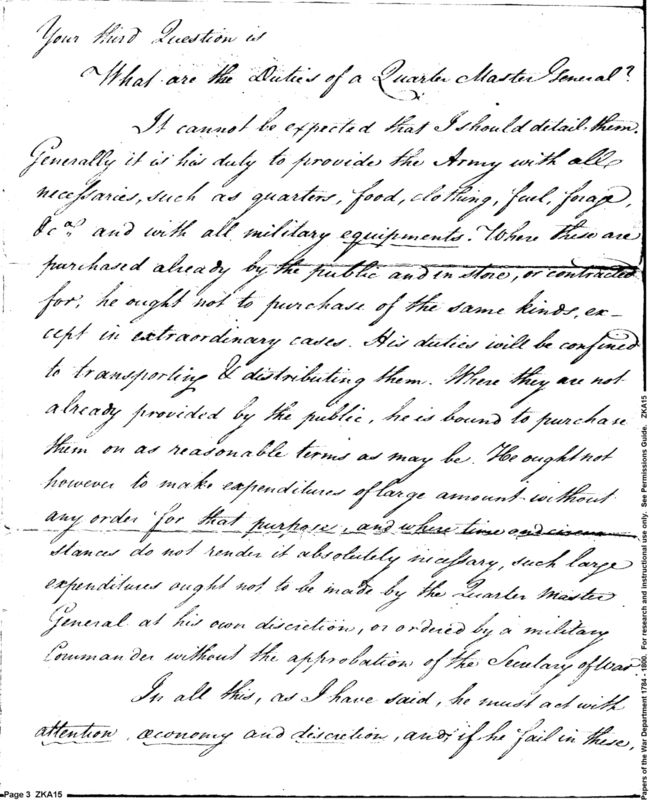 Your third Question is
What are the Duties of a Quarter Master General?
It cannot be expected that I should detail them.
Generally it is his duty to provide the Army with all
necessaries, such as quarters, food, clothing, fuel, forage,
&ca. and with all military equipments. Where these are
purchased already by the public and in store, or contracted
for, he ought not to purchase of the same kinds, ex-
cept in extraordinary cases. His duties will be confined
to transporting & distributing them. Where they are not
already provided by the public, he is bound to purchase
them on as reasonable terms as may be. He ought not
however to make expenditures of large amount without
any order for that purpose, and where time and circum
stances do not render it absolutely necessary, such large
expenditures ought not to be made by the Quarter Master
General at his own discretion, or ordered by a military
Commander without the approbation of the Secretary of War.
In all this, as I have said, he must act with
attention, œconomy and discretion, and, if he fail in these,
Page 3 ZKA15
Papers of the War Department 1784 - 1800. For research and instructional use only. See Permissions Guide. ZKA15